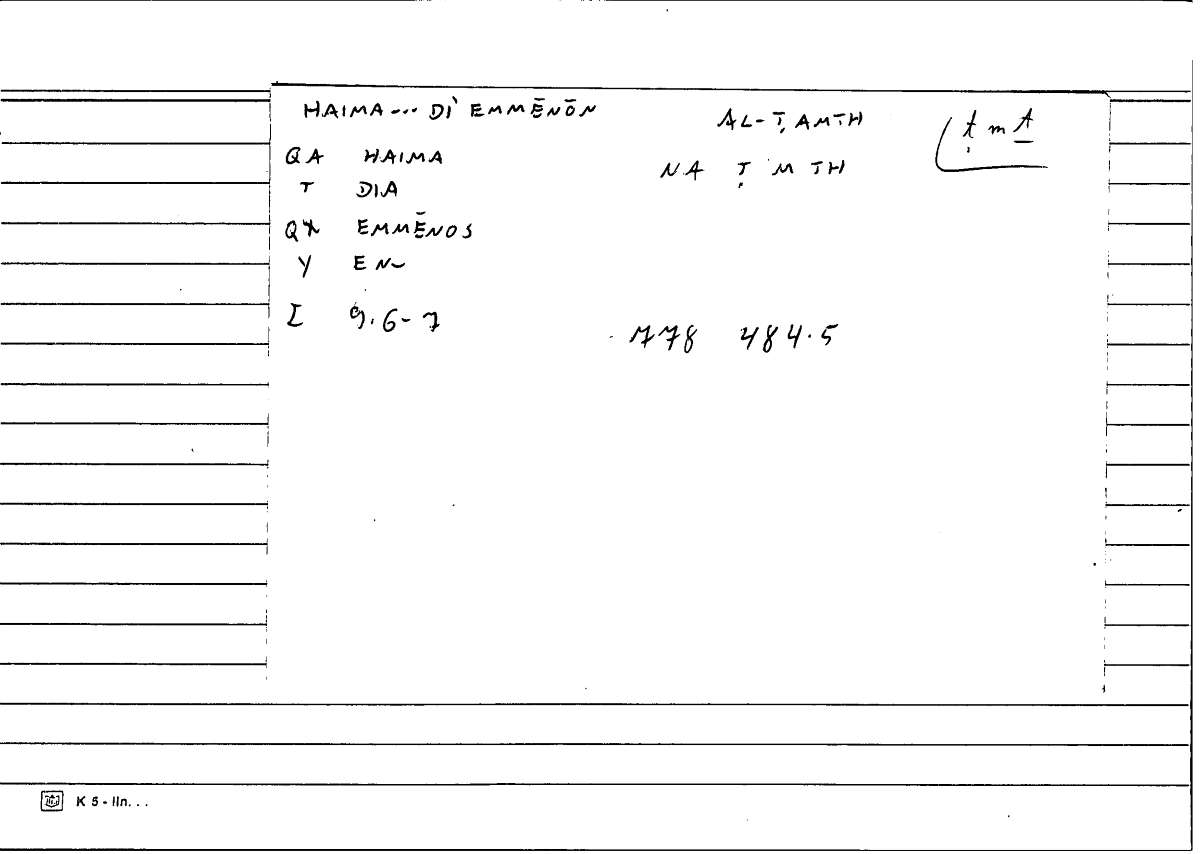 HAIMA... DI' EMMĒNŌN AL-ṬAMTH ṭmṯ
QA HAIMA NA ṬMTH
T DIA
QX EMMĒNOS
Y EN-
I 9.6-7 778 484.5
K 5 - lln. . .